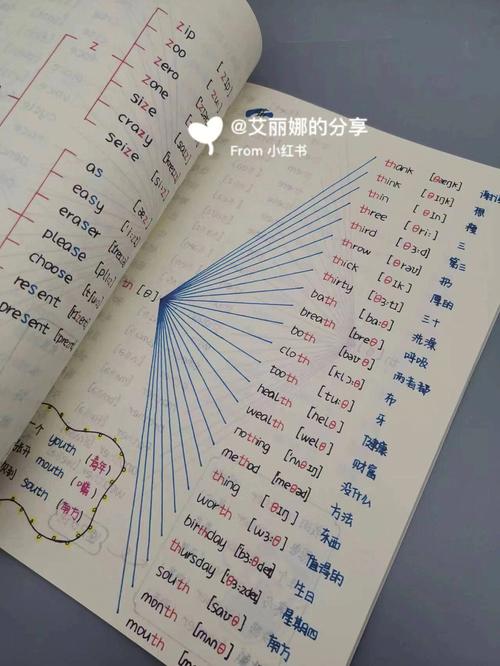 zip
z zoo
zero
zone
size
crazy
seize
as
easy
eraser
please
choose
resent
present
youth (青年)
mouth (嘴)
south (南方)
@艾丽娜的分享
From 小红书
th [θ]
thank [θæŋk]
think [θɪŋk] 想
thin [θɪn] 瘦
three [θri:] 三
third [θɜ:d] 第三
throw [θrəʊ] 扔
thick [θɪk] 厚的
thirty [θɜ:tɪ] 三十
bath [ba:θ] 洗澡
breath [breθ] 呼吸
both [bəʊθ] 两者都
cloth [klɔ:θ] 布
tooth [tu:θ] 牙
health [helθ] 健康
wealth [welθ] 财富
nothing [nʌθɪŋ] 没什么
method [meθəd] 方法
thing [θɪŋ] 东西
worth [wɜ:θ] 值得的
birthday [bɜ:θdeɪ] 生日
thursday [θɜ:zdeɪ] 星期四
south [saʊθ] 南方
month [mʌnθ]
mouth